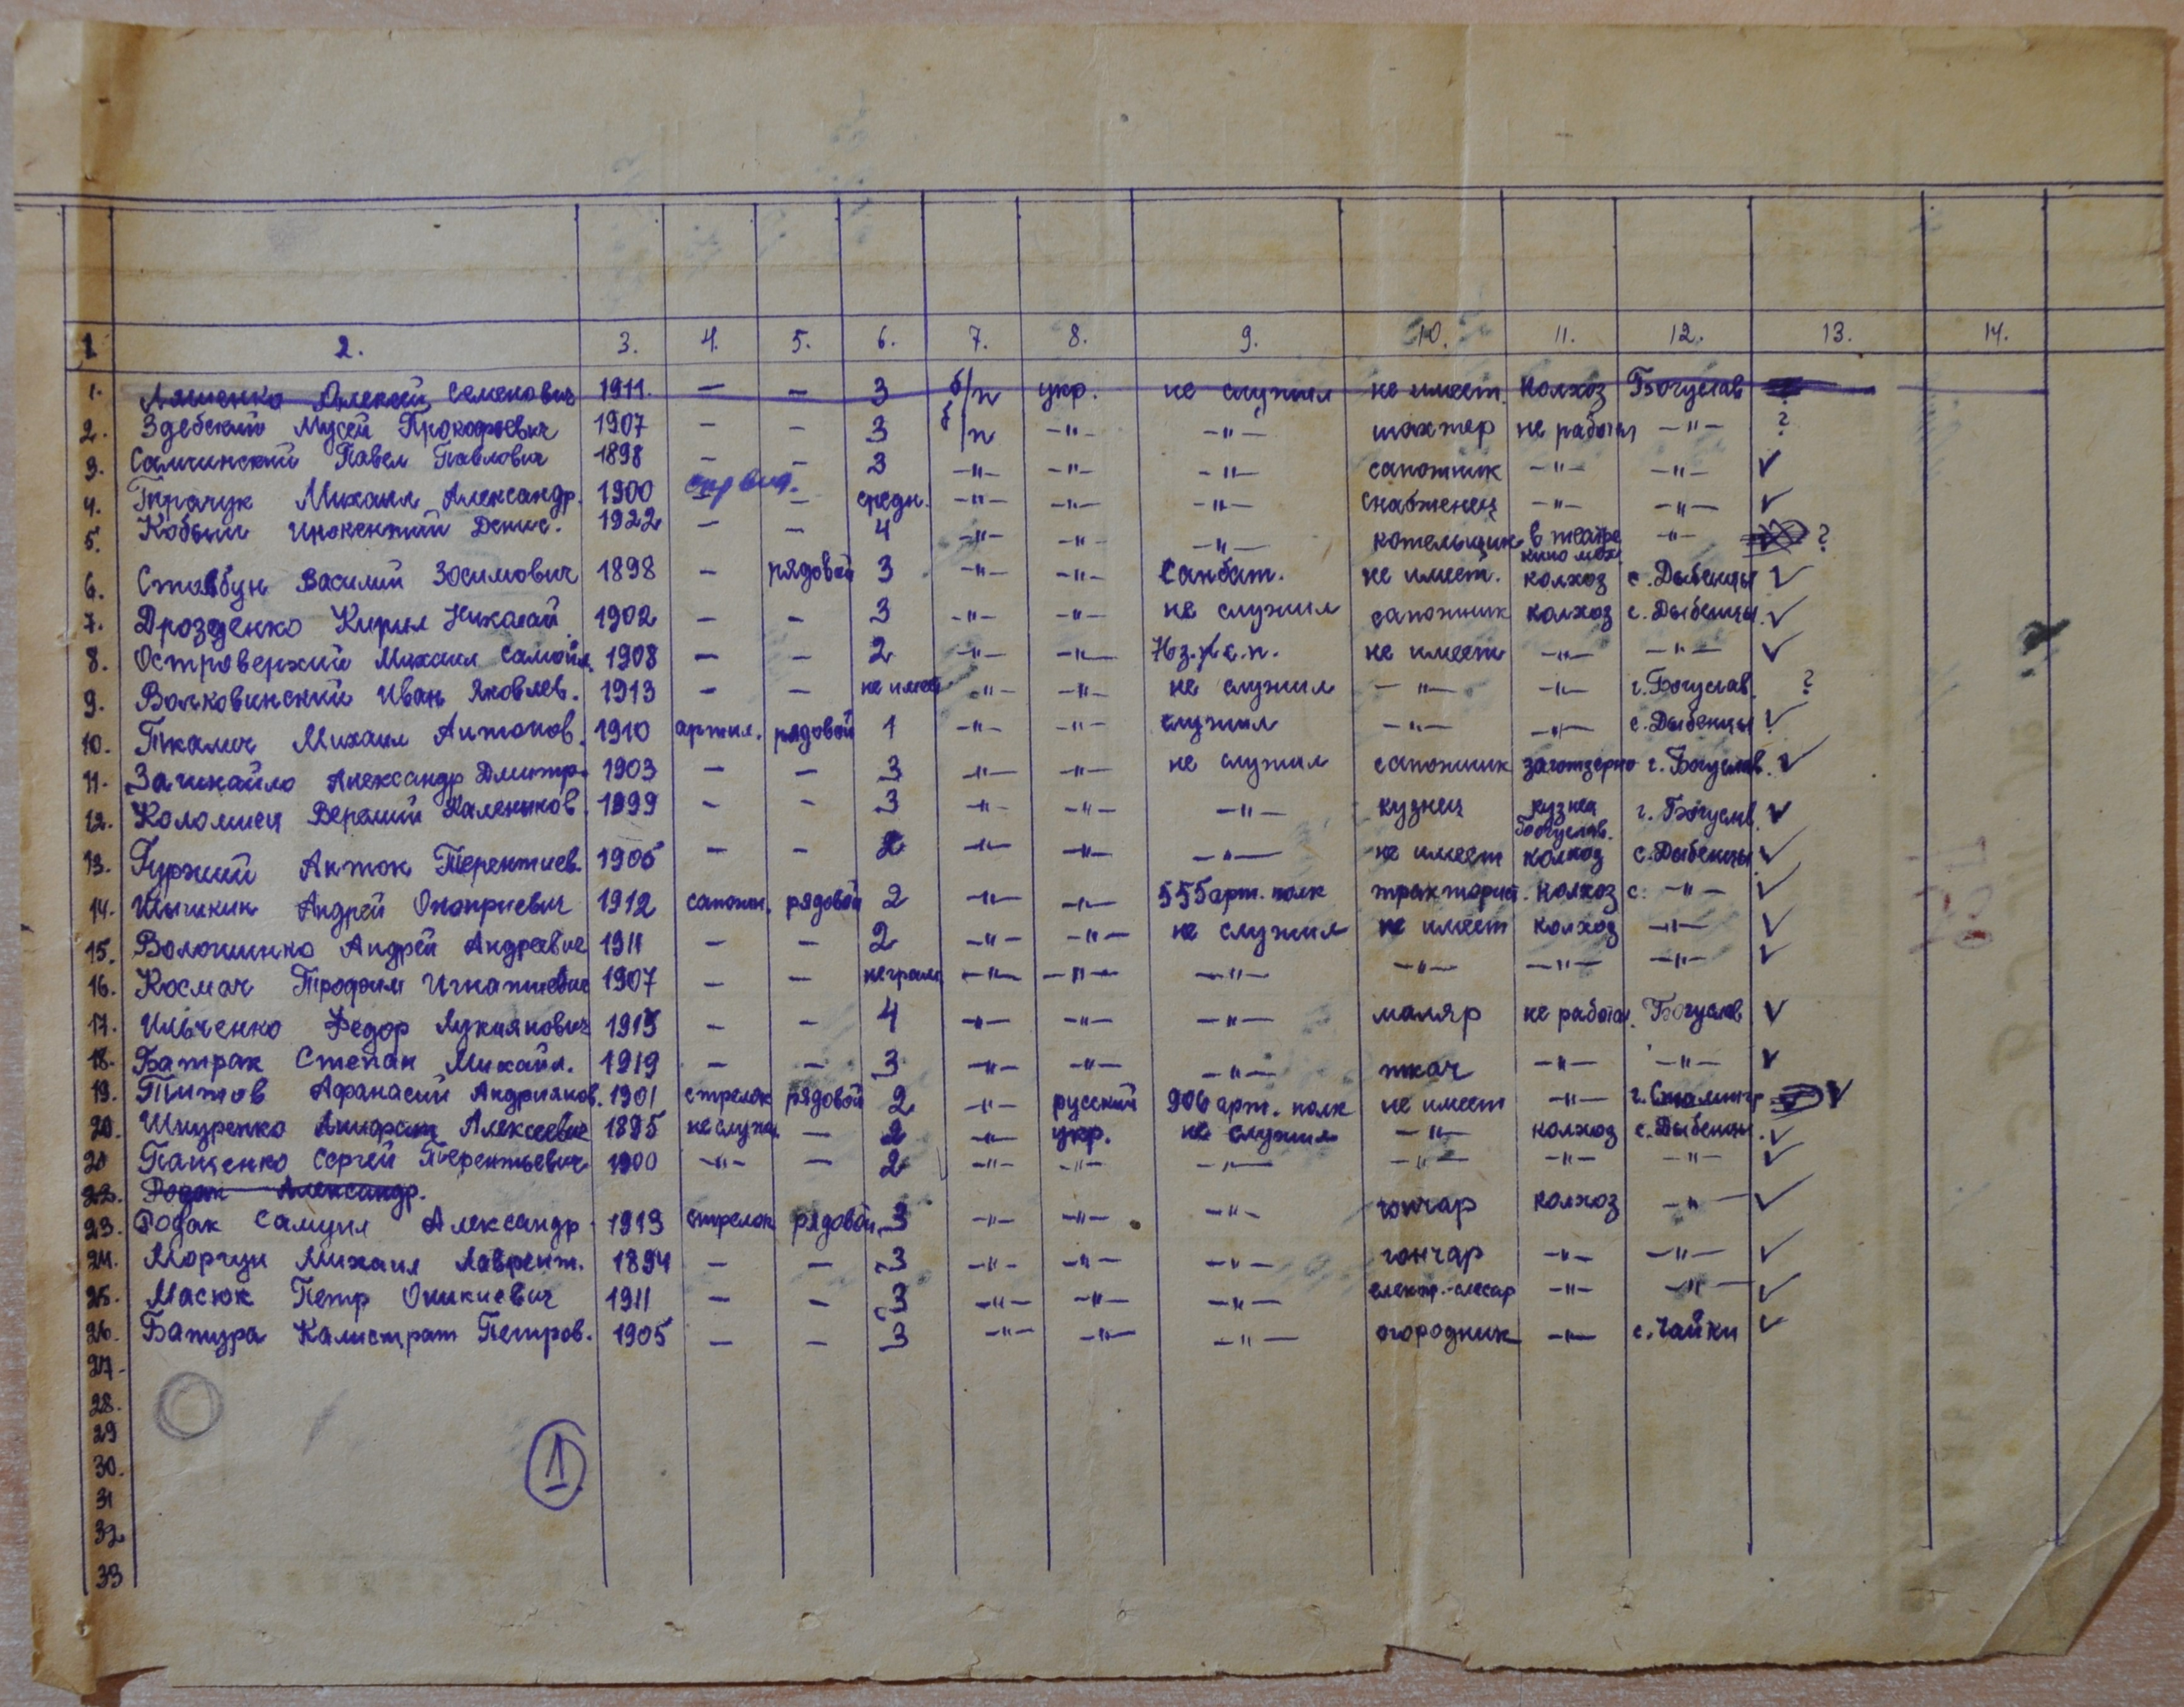 1 2. 3. 4. 5. 6. 7. 8. 9. 10. 11. 12. 13. 14.
1. Ляшенко Алексей Семенович 1911. — — 3 б/п укр. не служил не имеет. колхоз Богуслав
2. Здебский Мусей Прокофьевич 1907 — — 3 б/п —"— —"— шахтер не работал —"— ?
3. Самчинский Павел Павлович 1898 — — 3 —"— —"— —"— сапожник —"— —"— ✓
4. Ткачук Михаил Александр. 1900 — средн. —"— —"— —"— снабженец —"— —"— ✓
5. Кобыш Инокентий Денис. 1922 — — 4 —"— —"— —"— котельщик в театре кино мех. —"— ?
6. Стовбун Василий Зосимович 1898 — рядовой 3 —"— —"— Санбат. не имеет. колхоз с. Дыбенцы ✓
7. Дрозденко Кирил Николай 1902 — — 3 —"— —"— не служил сапожник колхоз с. Дыбенцы. ✓
8. Островерхий Михаил Самойл. 1908 — — 2 —"— —"— не имеет —"— —"— ✓
9. Волковинский Иван Яковлев. 1913 — — не имеет —"— —"— не служил —"— —"— г. Богуслав ?
10. Ткалич Михаил Антонов. 1910 артил. рядовой 1 —"— —"— служил —"— —"— с. Дыбенцы ✓
11. Зачикайло Александр Дмитр. 1903 — — 3 —"— —"— не служил сапожник заготзерно г. Богуслав. ✓
12. Коломиец Веремий Каленыков. 1899 — — 3 —"— —"— —"— кузнец кузнец Богуслав. г. Богуслав. ✓
13. Гуржий Антон Терентиев. 1905 — — 2 —"— —"— —"— не имеет колхоз с. Дыбенцы ✓
14. Шышкин Андрей Оноприевич 1912 сапожн. рядовой 2 —"— —"— 555 арт. полк тракторист. колхоз с. —"— ✓
15. Волошинко Андрей Андреевич 1911 — — 2 —"— —"— не служил не имеет колхоз —"— ✓
16. Космач Трофим Игнатиевич 1907 — — неграм. —"— —"— —"— —"— —"— —"— ✓
17. Ильченко Федор Лукиянович 1915 — — 4 —"— —"— —"— маляр не работал. Богуслав ✓
18. Батрак Степан Михайл. 1919 — — 3 —"— —"— —"— ткач —"— —"— ✓
19. Титов Афанасий Андриянов. 1901 стрелок рядовой 2 —"— русский 906 арт. полк не имеет —"— г. Сталингр ✓
20. Шкуренко Алексеевич 1895 не служил — 2 —"— укр. не служил —"— колхоз с. Дыбенцы. ✓
21 Пащенко Сергей Терентьевич 1900 —"— — 2 —"— —"— —"— —"— —"— —"— ✓
22. Родак Александр.
23. Родак Самуил Александр. 1913 стрелок рядовой 3 —"— —"— —"— гончар колхоз —"— ✓
24. Моргун Михаил Лаврент. 1894 — — 3 —"— —"— —"— гончар —"— —"— ✓
25. Масюк Петр Оникиевич 1911 — — 3 —"— —"— —"— електр.-слесар —"— —"— ✓
26. Батура Калистрат Петров. 1905 — — 3 —"— —"— —"— огородник —"— с. Чайки ✓
27.
28.
29
30.
31
32
33
1